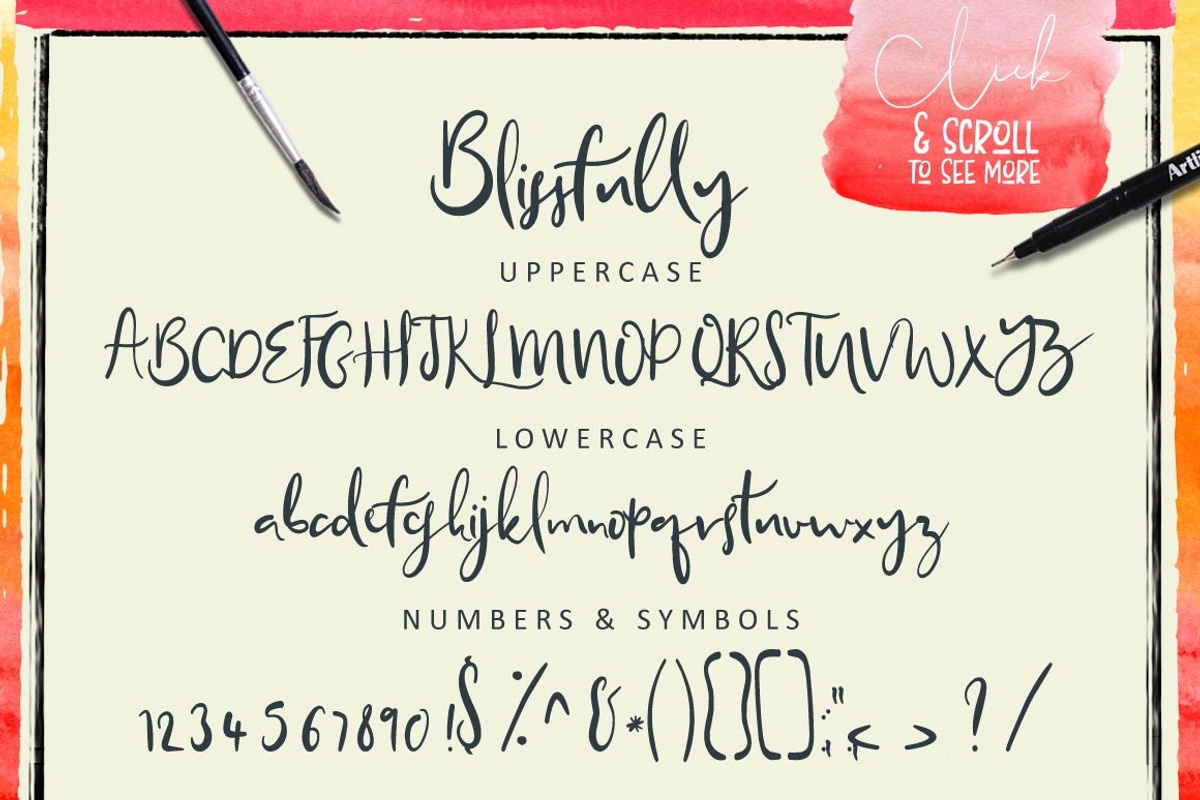 Click
& SCROLL
TO SEE MORE
Artli
Blissfully
UPPERCASE
ABCDEFGHIJKLMNOPQRSTUVWXYZ
LOWERCASE
abcdefghijklmnopqrstuvwxyz
NUMBERS & SYMBOLS
1234567890!$%^&*(){}[]:;"<>?/